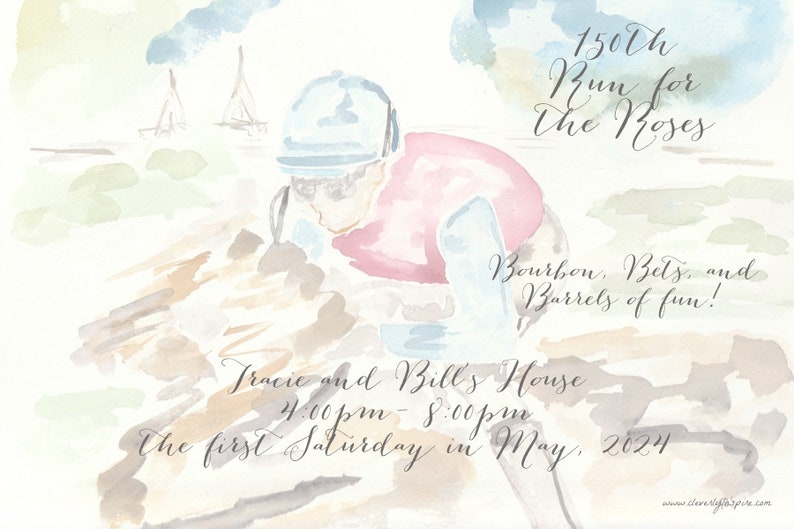 150th
Run for
the Roses
Bourbon, Bets, and
Barrels of fun!
Tracie and Bill's House
4:00pm - 8:00pm
the first Saturday in May, 2024
www.cleverlyinspire.com